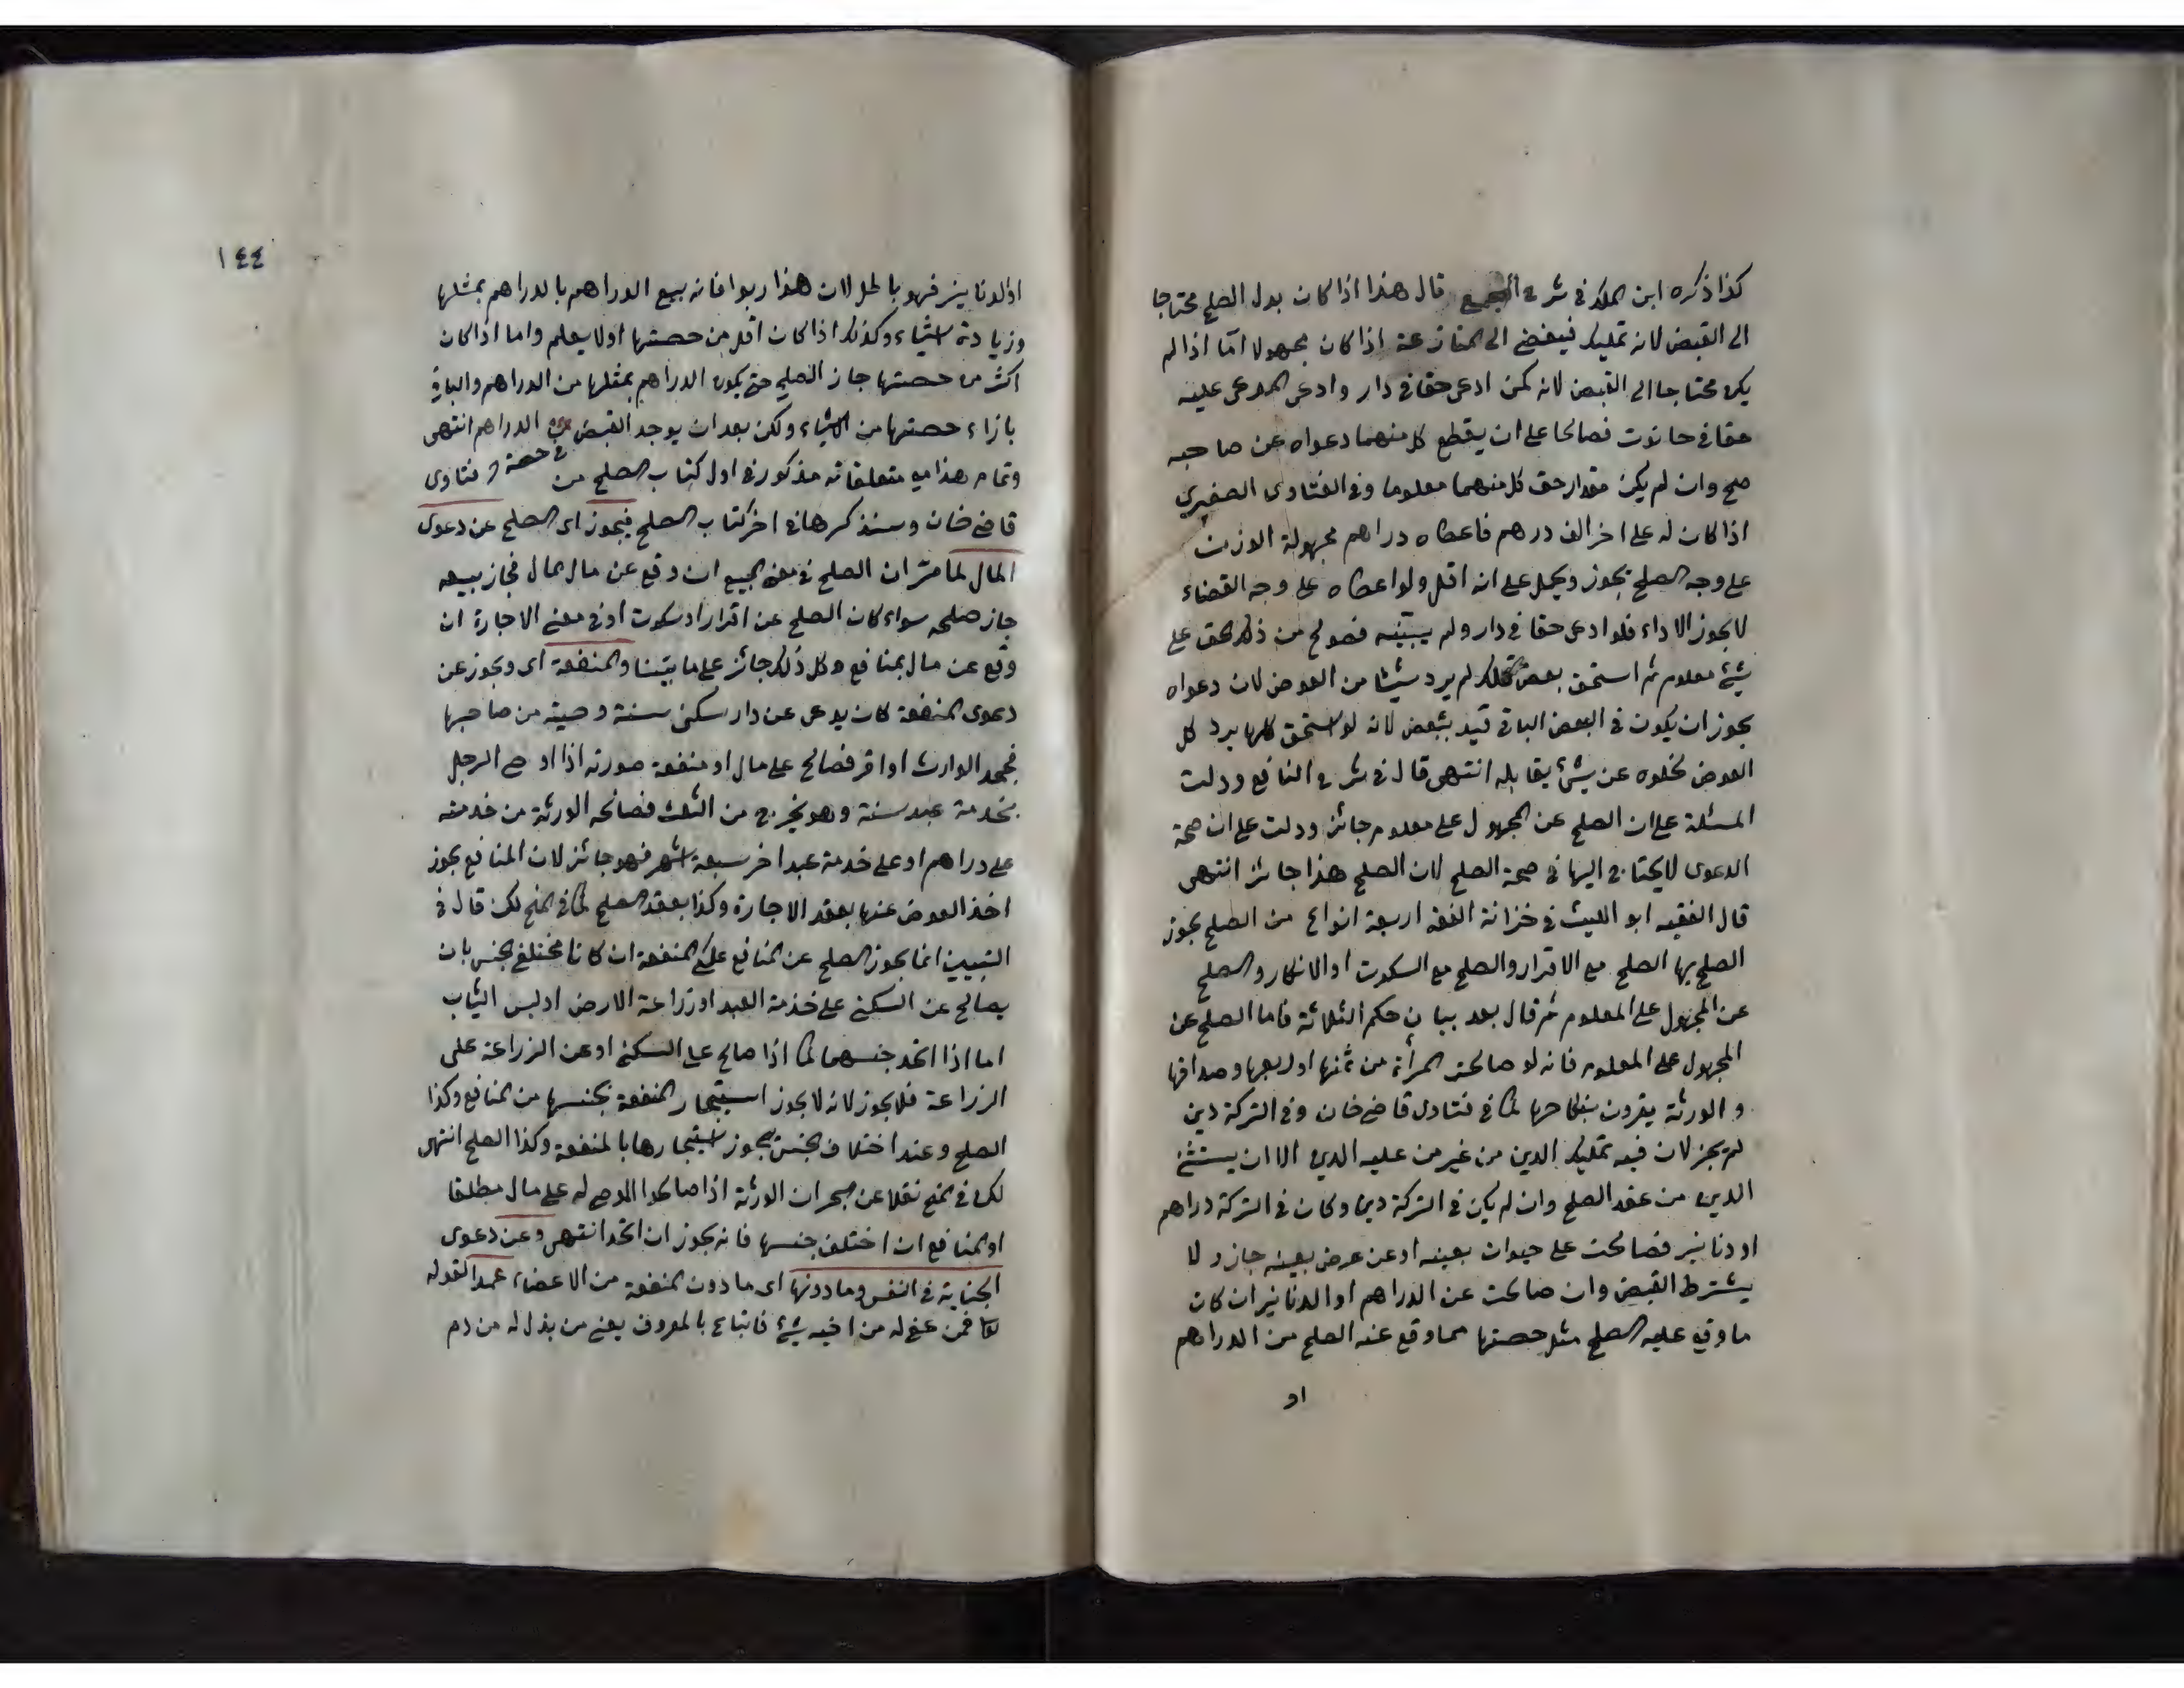 كذا ذكره ابن الملك في شرح المجمع قال هذا اذا كان بدل الصلح محتاجا
الى القبض لانه تمليك فيفضي الى المنازعة اذا كان مجهولا امّا اذا لم
يكن محتاجا الى القبض لانه كمن ادعى حقا في دار وادعى المدعى عليه
حقا في حانوت فصالحا على ان يقطع كل منهما دعواه عن صاحبه
صح وان لم يكن مقدار حق كل منهما معلوما وفي الفتاوى الصغرى
اذا كان له على اخر الف درهم فاعطاه دراهم مجهولة الوزن
على وجه الصلح يجوز ويحمل على انه اقل ولو اعطاه على وجه القضاء
لا يجوز الاداء فلو ادعى حقا في دار ولم يبيّنه فصولح من ذلك الحق على
شئ معلوم ثم استحق بعض تلك لم يرد شيئا من العوض لان دعواه
يجوز ان يكون في البعض الباقي قيد ببعض لانه لو استحق كلها يرد كل
العوض لخلوه عن شئ يقابله انتهى قال في شرح النافع ودلت
المسئلة على ان الصلح عن المجهول على معلوم جائز ودلت على ان صحة
الدعوى لا يحتاج اليها في صحة الصلح لان الصلح هذا جائز انتهى
قال الفقيه ابو الليث في خزانة الفقه اربعة انواع من الصلح يجوز
الصلح بها الصلح مع الاقرار والصلح مع السكوت او الانكار والصلح
عن المجهول على المعلوم ثم قال بعد بيان حكم الثلاثة فاما الصلح عن
المجهول على المعلوم فانه لو صالحت المرأة من ثمنها او ربعها وصداقها
و الورثة يقرون بنكاحها كما في فتاوى قاضي خان وفي التركة دين
لم يجز لان فيه تمليك الدين من غير من عليه الدين الا ان يستثنى
الدين من عقد الصلح وان لم يكن في التركة دين وكان في التركة دراهم
او دنانير فصالحت على حيوان بعينه او عن عرض بعينه جاز ولا
يشترط القبض وان صالحت عن الدراهم او الدنانير ان كان
ما وقع عليه الصلح مثل حصتها مما وقع عنه الصلح من الدراهم
او
١٤٤
او الدنانير فهو باطل لان هذا ربوا فانه بيع الدراهم بالدراهم بمثلها
وزيادة اشياء وكذلك اذا كان اقل من حصتها او لا يعلم واما اذا كان
اكثر من حصتها جاز الصلح حتى يكون الدراهم بمثلها من الدراهم والباقي
بازاء حصتها من الاشياء ولكن بعد ان يوجد القبض الدراهم انتهى
في حصة
وتمام هذا مع متعلقاته مذكور في اول كتاب الصلح من فتاوى
قاضي خان وسنذكرها في اخر كتاب الصلح فيجوز اى الصلح عن دعوى
المال لما مرّ ان الصلح في معنى البيع ان وقع عن مال بمال فجاز بيعه
جاز صلحه سواء كان الصلح عن اقرار او سكوت او في معنى الاجارة ان
وقع عن مال بمنافع وكل ذلك جائز على ما بيّنا والمنفعة اى ويجوز عن
دعوى المنفعة كان يدعى عن دار سكنى سنة وصية من صاحبها
فجحد الوارث او اقر فصالح على مال او منفعة صورته اذا اوصى الرجل
بخدمة عبد سنة وهو يخرج من الثلث فصالحه الورثة من خدمته
على دراهم او على خدمة عبد اخر سبعة اشهر فهو جائز لان المنافع يجوز
اخذ العوض عنها بعقد الاجارة وكذا بعقد الصلح كما في المنح لكن قال في
التبيين انما يجوز الصلح عن المنافع على المنفعة ان كانا مختلفي الجنس بان
يصالح عن السكنى على خدمة العبد او زراعة الارض او لبس الثياب
اما اذا اتحد جنسهما كما اذا صالح على السكنى او عن الزراعة على
الزراعة فلا يجوز لانه لا يجوز استيجار المنفعة بجنسها من المنافع وكذا
الصلح وعند اختلاف الجنس يجوز استيجارها بالمنفعة وكذا الصلح انتهى
لكن في المنح نقلا عن البحر ان الورثة اذا صالحوا الموصى له على مال مطلقا
او المنافع ان اختلف جنسها فانه يجوز ان اتحد انتهى وعن دعوى
الجناية في النفس وما دونها اى ما دون المنفعة من الاعضاء عمدا لقوله
تعالى فمن عفي له من اخيه شئ فاتباع بالمعروف يعني من بذل له من دم